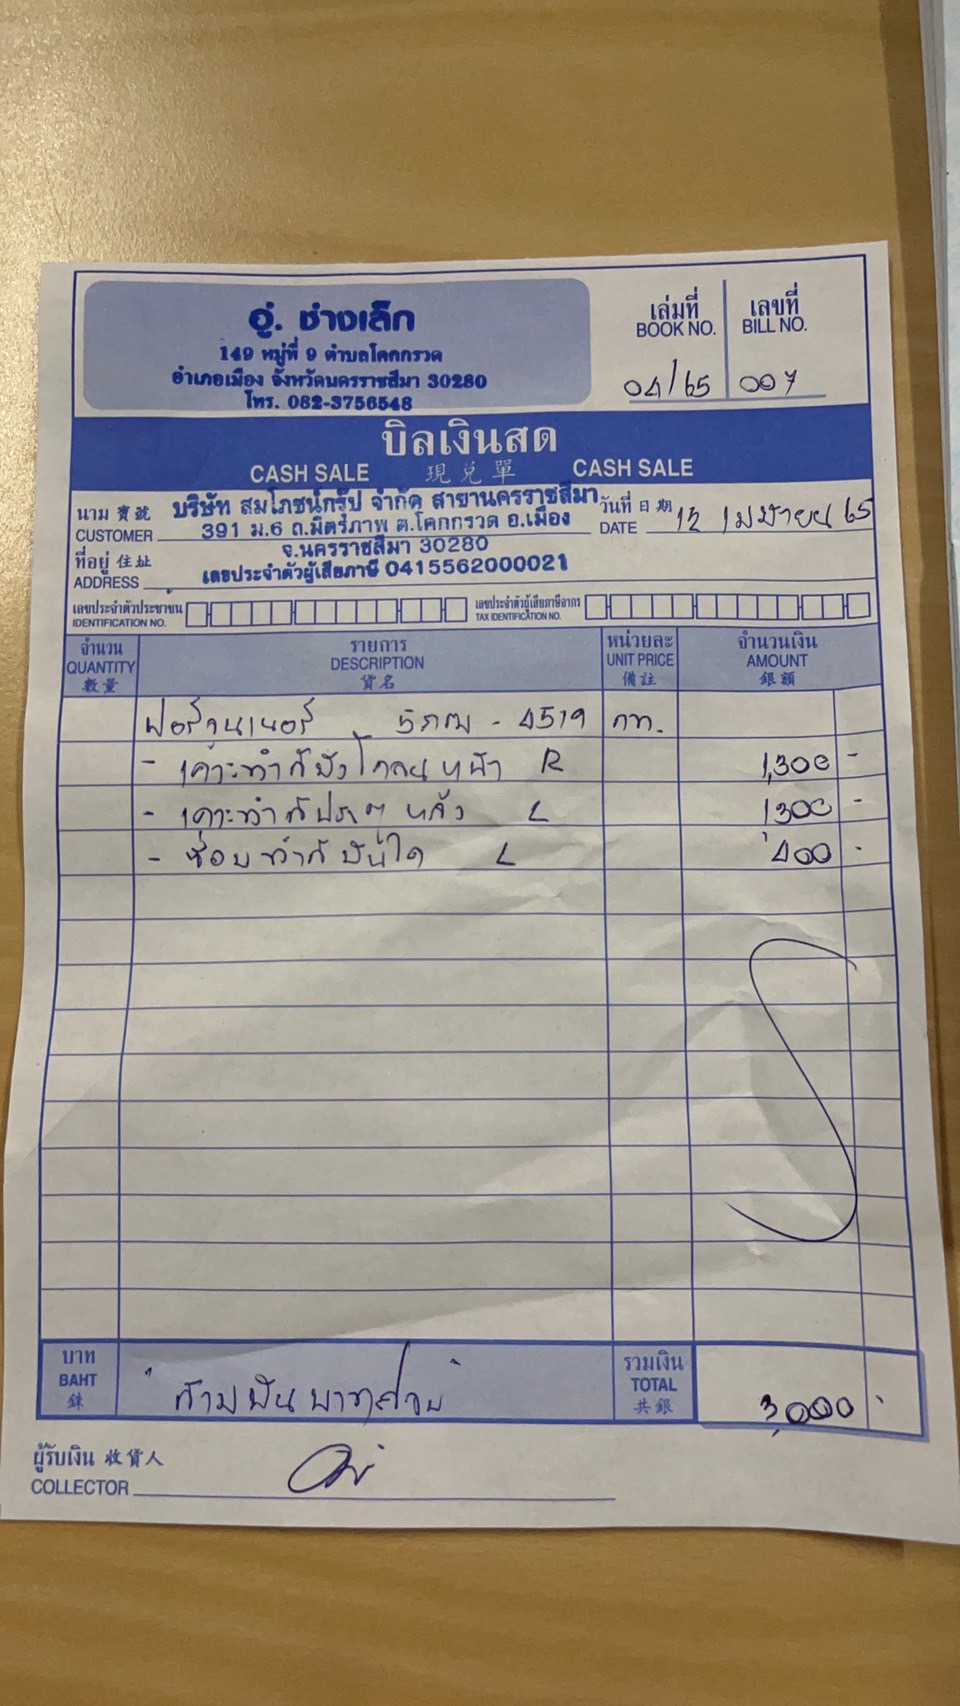 อู่. ช่างเล็ก
149 หมู่ที่ 9 ตำบลโคกกรวด
อำเภอเมือง จังหวัดนครราชสีมา 30280
โทร. 082-3756548
เล่มที่ เลขที่
BOOK NO. BILL NO.
04/65 007
บิลเงินสด
CASH SALE 現兌單 CASH SALE
นาม 寶號 บริษัท สมโภชน์กรุ๊ป จำกัด สาขานครราชสีมา วันที่ 日期
CUSTOMER 391 ม.6 ถ.มิตรภาพ ต.โคกกรวด อ.เมือง DATE 12 เมษายน 65
ที่อยู่ 住址 จ.นครราชสีมา 30280
ADDRESS เลขประจำตัวผู้เสียภาษี 0415562000021
เลขประจำตัวประชาชน เลขประจำตัวผู้เสียภาษีอากร
IDENTIFICATION NO. TAX IDENTIFICATION NO.
จำนวน รายการ หน่วยละ จำนวนเงิน
QUANTITY DESCRIPTION UNIT PRICE AMOUNT
數量 貨名 備註 銀額
ฟอร์จูนเนอร์ - 4519 กท.
- เคาะทำสีบังโคลนหน้า R 1,300 -
- เคาะทำสีประตูหลัง L 1,300 -
- ซ่อมทำสีบันใด L 400 -
บาท รวมเงิน
BAHT สามพันบาทถ้วน TOTAL 3,000 -
銖 共銀
ผู้รับเงิน 收貨人
COLLECTOR